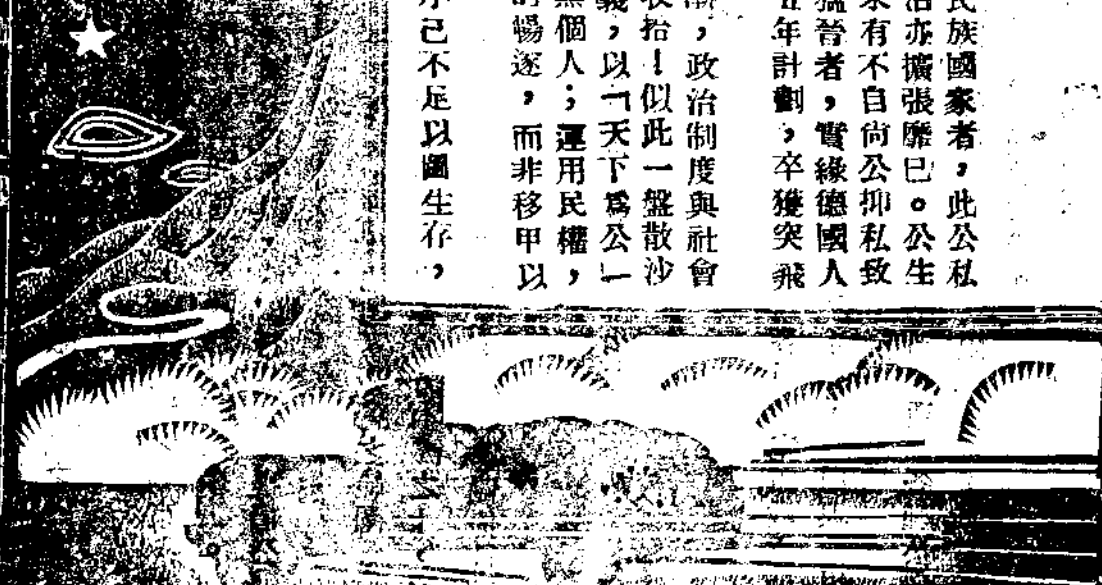 民族國家者，此公私
治亦擴張靡已。公生
求有不自尙公抑私致
猛晉者，實緣德國人
五年計劃，卒獲突飛
漸，政治制度與社會
收拾！似此一盤散沙
義，以「天下爲公」
無個人；運用民權，
暢遂，而非移甲以
己不足以圖生存，